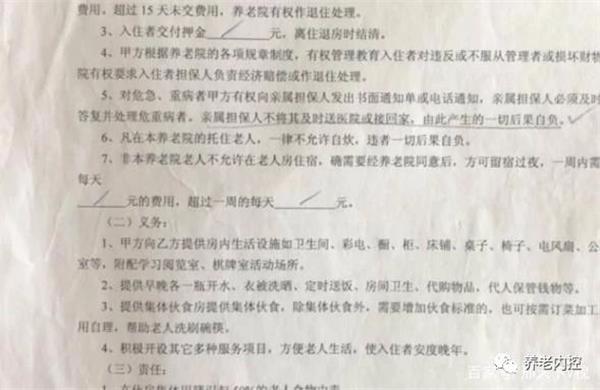 费用，超过 15 天未交费用，养老院有权作退住处理。
3、入住者交付押金 元，离住退房时结清。
4、甲方根据养老院的各项规章制度，有权管理教育入住者对违反或不服从管理者或损坏财物
院有权要求入住者担保人负责经济赔偿或作退住处理。
5、对危急、重病者甲方有权向亲属担保人发出书面通知单或电话通知，亲属担保人必须及时
答复并处理危重病者。亲属担保人不将其及时送医院或接回家，由此产生的一切后果自负。
6、凡在本养老院的托住老人，一律不允许自炊，违者一切后果自负。
7、非本养老院老人不允许在老人房住宿，确需要经养老院同意后，方可留宿过夜，一周内需
每天
元的费用，超过一周的每天 元。
（二）义务：
1、甲方向乙方提供房内生活设施如卫生间、彩电、橱、柜、床铺、桌子、椅子、电风扇、公
室等，附配学习阅览室、棋牌室活动场所。
2、提供早晚各一瓶开水、衣被洗晒、定时送饭、房间卫生、代购物品，代人保管钱物等。
3、提供集体伙食房提供集体伙食，除集体伙食外，需要增加伙食标准的，也可按需订菜加工
用自理，帮助老人洗刷碗筷。
4、积极开设其它多种服务项目，方便老人生活，使入住者安度晚年。
（三）责任：
养老内控